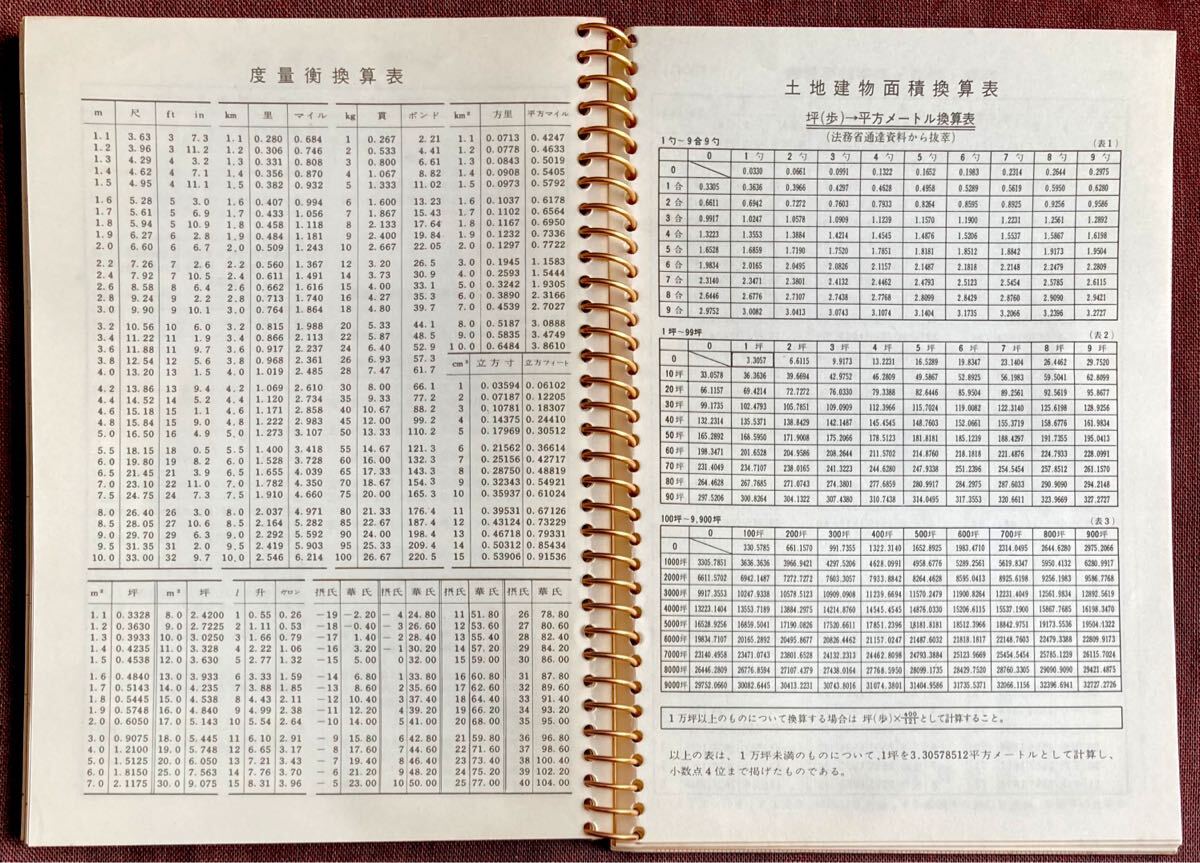 度量衡換算表
m 尺 ft in km 里 マイル kg 貫 ポンド km² 方里 平方マイル
1.1 3.63 3 7.3 1.1 0.280 0.684 1 0.267 2.21 1.1 0.0713 0.4247
1.2 3.96 3 11.2 1.2 0.306 0.746 2 0.533 4.41 1.2 0.0778 0.4633
1.3 4.29 4 3.2 1.3 0.331 0.808 3 0.800 6.61 1.3 0.0843 0.5019
1.4 4.62 4 7.1 1.4 0.356 0.870 4 1.067 8.82 1.4 0.0908 0.5405
1.5 4.95 4 11.1 1.5 0.382 0.932 5 1.333 11.02 1.5 0.0973 0.5792
1.6 5.28 5 3.0 1.6 0.407 0.994 6 1.600 13.23 1.6 0.1037 0.6178
1.7 5.61 5 6.9 1.7 0.433 1.056 7 1.867 15.43 1.7 0.1102 0.6564
1.8 5.94 5 10.9 1.8 0.458 1.118 8 2.133 17.64 1.8 0.1167 0.6950
1.9 6.27 6 2.8 1.9 0.484 1.181 9 2.400 19.84 1.9 0.1232 0.7336
2.0 6.60 6 6.7 2.0 0.509 1.243 10 2.667 22.05 2.0 0.1297 0.7722
2.2 7.26 7 2.6 2.2 0.560 1.367 12 3.20 26.5 3.0 0.1945 1.1583
2.4 7.92 7 10.5 2.4 0.611 1.491 14 3.73 30.9 4.0 0.2593 1.5444
2.6 8.58 8 6.4 2.6 0.662 1.616 15 4.00 33.1 5.0 0.3242 1.9305
2.8 9.24 9 2.2 2.8 0.713 1.740 16 4.27 35.3 6.0 0.3890 2.3166
3.0 9.90 9 10.1 3.0 0.764 1.864 18 4.80 39.7 7.0 0.4539 2.7027
3.2 10.56 10 6.0 3.2 0.815 1.988 20 5.33 44.1 8.0 0.5187 3.0888
3.4 11.22 11 1.9 3.4 0.866 2.113 22 5.87 48.5 9.0 0.5835 3.4749
3.6 11.88 11 9.7 3.6 0.917 2.237 24 6.40 52.9 10.0 0.6484 3.8610
3.8 12.54 12 5.6 3.8 0.968 2.361 26 6.93 57.3 cm³ 立方寸 立方フィート
4.0 13.20 13 1.5 4.0 1.019 2.485 28 7.47 61.7
4.2 13.86 13 9.4 4.2 1.069 2.610 30 8.00 66.1 1 0.03594 0.06102
4.4 14.52 14 5.2 4.4 1.120 2.734 35 9.33 77.2 2 0.07187 0.12205
4.6 15.18 15 1.1 4.6 1.171 2.858 40 10.67 88.2 3 0.10781 0.18307
4.8 15.84 15 9.0 4.8 1.222 2.983 45 12.00 99.2 4 0.14375 0.24410
5.0 16.50 16 4.9 5.0 1.273 3.107 50 13.33 110.2 5 0.17969 0.30512
5.5 18.15 18 0.5 5.5 1.400 3.418 55 14.67 121.3 6 0.21562 0.36614
6.0 19.80 19 8.2 6.0 1.528 3.728 60 16.00 132.3 7 0.25156 0.42717
6.5 21.45 21 3.9 6.5 1.655 4.039 65 17.33 143.3 8 0.28750 0.48819
7.0 23.10 22 11.0 7.0 1.782 4.350 70 18.67 154.3 9 0.32343 0.54921
7.5 24.75 24 7.3 7.5 1.910 4.660 75 20.00 165.3 10 0.35937 0.61024
8.0 26.40 26 3.0 8.0 2.037 4.971 80 21.33 176.4 11 0.39531 0.67126
8.5 28.05 27 10.6 8.5 2.164 5.282 85 22.67 187.4 12 0.43124 0.73229
9.0 29.70 29 6.3 9.0 2.292 5.592 90 24.00 198.4 13 0.46718 0.79331
9.5 31.35 31 2.0 9.5 2.419 5.903 95 25.33 209.4 14 0.50312 0.85434
10.0 33.00 32 9.7 10.0 2.546 6.214 100 26.67 220.5 15 0.53906 0.91536
m² 坪 m² 坪 l 升 ガロン 摂氏 華氏 摂氏 華氏 摂氏 華氏 摂氏 華氏
1.1 0.3328 8.0 2.4200 1 0.55 0.26 −19 −2.20 −4 24.80 11 51.80 26 78.80
1.2 0.3630 9.0 2.7225 2 1.11 0.53 −18 −0.40 −3 26.60 12 53.60 27 80.60
1.3 0.3933 10.0 3.0250 3 1.66 0.79 −17 1.40 −2 28.40 13 55.40 28 82.40
1.4 0.4235 11.0 3.328 4 2.22 1.06 −16 3.20 −1 30.20 14 57.20 29 84.20
1.5 0.4538 12.0 3.630 5 2.77 1.32 −15 5.00 0 32.00 15 59.00 30 86.00
1.6 0.4840 13.0 3.933 6 3.33 1.59 −14 6.80 1 33.80 16 60.80 31 87.80
1.7 0.5143 14.0 4.235 7 3.88 1.85 −13 8.60 2 35.60 17 62.60 32 89.60
1.8 0.5445 15.0 4.538 8 4.43 2.11 −12 10.40 3 37.40 18 64.40 33 91.40
1.9 0.5748 16.0 4.840 9 4.99 2.38 −11 12.20 4 39.20 19 66.20 34 93.20
2.0 0.6050 17.0 5.143 10 5.54 2.64 −10 14.00 5 41.00 20 68.00 35 95.00
3.0 0.9075 18.0 5.445 11 6.10 2.91 −9 15.80 6 42.80 21 59.80 36 96.80
4.0 1.2100 19.0 5.748 12 6.65 3.17 −8 17.60 7 44.60 22 71.60 37 98.60
5.0 1.5125 20.0 6.050 13 7.21 3.43 −7 19.40 8 46.40 23 73.40 38 100.40
6.0 1.8150 25.0 7.563 14 7.76 3.70 −6 21.20 9 48.20 24 75.20 39 102.20
7.0 2.1175 30.0 9.075 15 8.31 3.96 −5 23.00 10 50.00 25 77.00 40 104.00
土地建物面積換算表
坪(歩)→平方メートル換算表
(法務省通達資料から抜萃)
1勺~9合9勺 (表1)
0 1勺 2勺 3勺 4勺 5勺 6勺 7勺 8勺 9勺
0 0.0330 0.0661 0.0991 0.1322 0.1652 0.1983 0.2314 0.2644 0.2975
1合 0.3305 0.3636 0.3966 0.4297 0.4628 0.4958 0.5289 0.5619 0.5950 0.6280
2合 0.6611 0.6942 0.7272 0.7603 0.7933 0.8264 0.8595 0.8925 0.9256 0.9586
3合 0.9917 1.0247 1.0578 1.0909 1.1239 1.1570 1.1900 1.2231 1.2561 1.2892
4合 1.3223 1.3553 1.3884 1.4214 1.4545 1.4876 1.5206 1.5537 1.5867 1.6198
5合 1.6528 1.6859 1.7190 1.7520 1.7851 1.8181 1.8512 1.8842 1.9173 1.9504
6合 1.9834 2.0165 2.0495 2.0826 2.1157 2.1487 2.1818 2.2148 2.2479 2.2809
7合 2.3140 2.3471 2.3801 2.4132 2.4462 2.4793 2.5123 2.5454 2.5785 2.6115
8合 2.6446 2.6776 2.7107 2.7438 2.7768 2.8099 2.8429 2.8760 2.9090 2.9421
9合 2.9752 3.0082 3.0413 3.0743 3.1074 3.1404 3.1735 3.2066 3.2396 3.2727
1坪~99坪 (表2)
1坪 2坪 3坪 4坪 5坪 6坪 7坪 8坪 9坪
0 3.3057 6.6115 9.9173 13.2231 16.5289 19.8347 23.1404 26.4462 29.7520
10坪 33.0578 36.3636 39.6694 42.9752 46.2809 49.5867 52.8925 56.1983 59.5041 62.8099
20坪 66.1157 69.4214 72.7272 76.0330 79.3388 82.6446 85.9504 89.2561 92.5619 95.8677
30坪 99.1735 102.4793 105.7851 109.0909 112.3966 115.7024 119.0082 122.3140 125.6198 128.9256
40坪 132.2314 135.5371 138.8429 142.1487 145.4545 148.7603 152.0661 155.3719 158.6776 161.9834
50坪 165.2892 168.5950 171.9008 175.2066 178.5123 181.8181 185.1239 188.4297 191.7355 195.0413
60坪 198.3471 201.6528 204.9586 208.2644 211.5702 214.8760 218.1818 221.4876 224.7933 228.0991
70坪 231.4049 234.7107 238.0165 241.3223 244.6280 247.9338 251.2396 254.5454 257.8512 261.1570
80坪 264.4628 267.7685 271.0743 274.3801 277.6859 280.9917 284.2975 287.6033 290.9090 294.2148
90坪 297.5206 300.8264 304.1322 307.4380 310.7438 314.0495 317.3553 320.6611 323.9669 327.2727
100坪~9,900坪 (表3)
100坪 200坪 300坪 400坪 500坪 600坪 700坪 800坪 900坪
0 330.5785 661.1570 991.7355 1322.3140 1652.8925 1983.4710 2314.0495 2644.6280 2975.2066
1000坪 3305.7851 3636.3636 3966.9421 4297.5206 4628.0991 4958.6776 5289.2561 5619.8347 5950.4132 6280.9917
2000坪 6611.5702 6942.1487 7272.7272 7603.3057 7933.8842 8264.4628 8595.0413 8925.6198 9256.1983 9586.7768
3000坪 9917.3553 10247.9338 10578.5123 10909.0908 11239.6694 11570.2479 11900.8264 12231.4049 12561.9834 12892.5619
4000坪 13223.1404 13553.7189 13884.2975 14214.8760 14545.4545 14876.0330 15206.6115 15537.1900 15867.7685 16198.3470
5000坪 16528.9256 16859.5041 17190.0826 17520.6611 17851.2396 18181.8181 18512.3966 18842.9751 19173.5536 19504.1322
6000坪 19834.7107 20165.2892 20495.8677 20826.4462 21157.0247 21487.6032 21818.1817 22148.7603 22479.3388 22809.9173
7000坪 23140.4958 23471.0743 23801.6528 24132.2313 24462.8098 24793.3884 25123.9669 25454.5454 25785.1239 26115.7024
8000坪 26446.2809 26776.8594 27107.4379 27438.0164 27768.5950 28099.1735 28429.7520 28760.3305 29090.9090 29421.4875
9000坪 29752.0660 30082.6445 30413.2231 30743.8016 31074.3801 31404.9586 31735.5371 32066.1156 32396.6941 32727.2726
1万坪以上のものについて換算する場合は 坪(歩)×400/121として計算すること。
以上の表は、1万坪未満のものについて、1坪を3.30578512平方メートルとして計算し、
小数点4位まで掲げたものである。